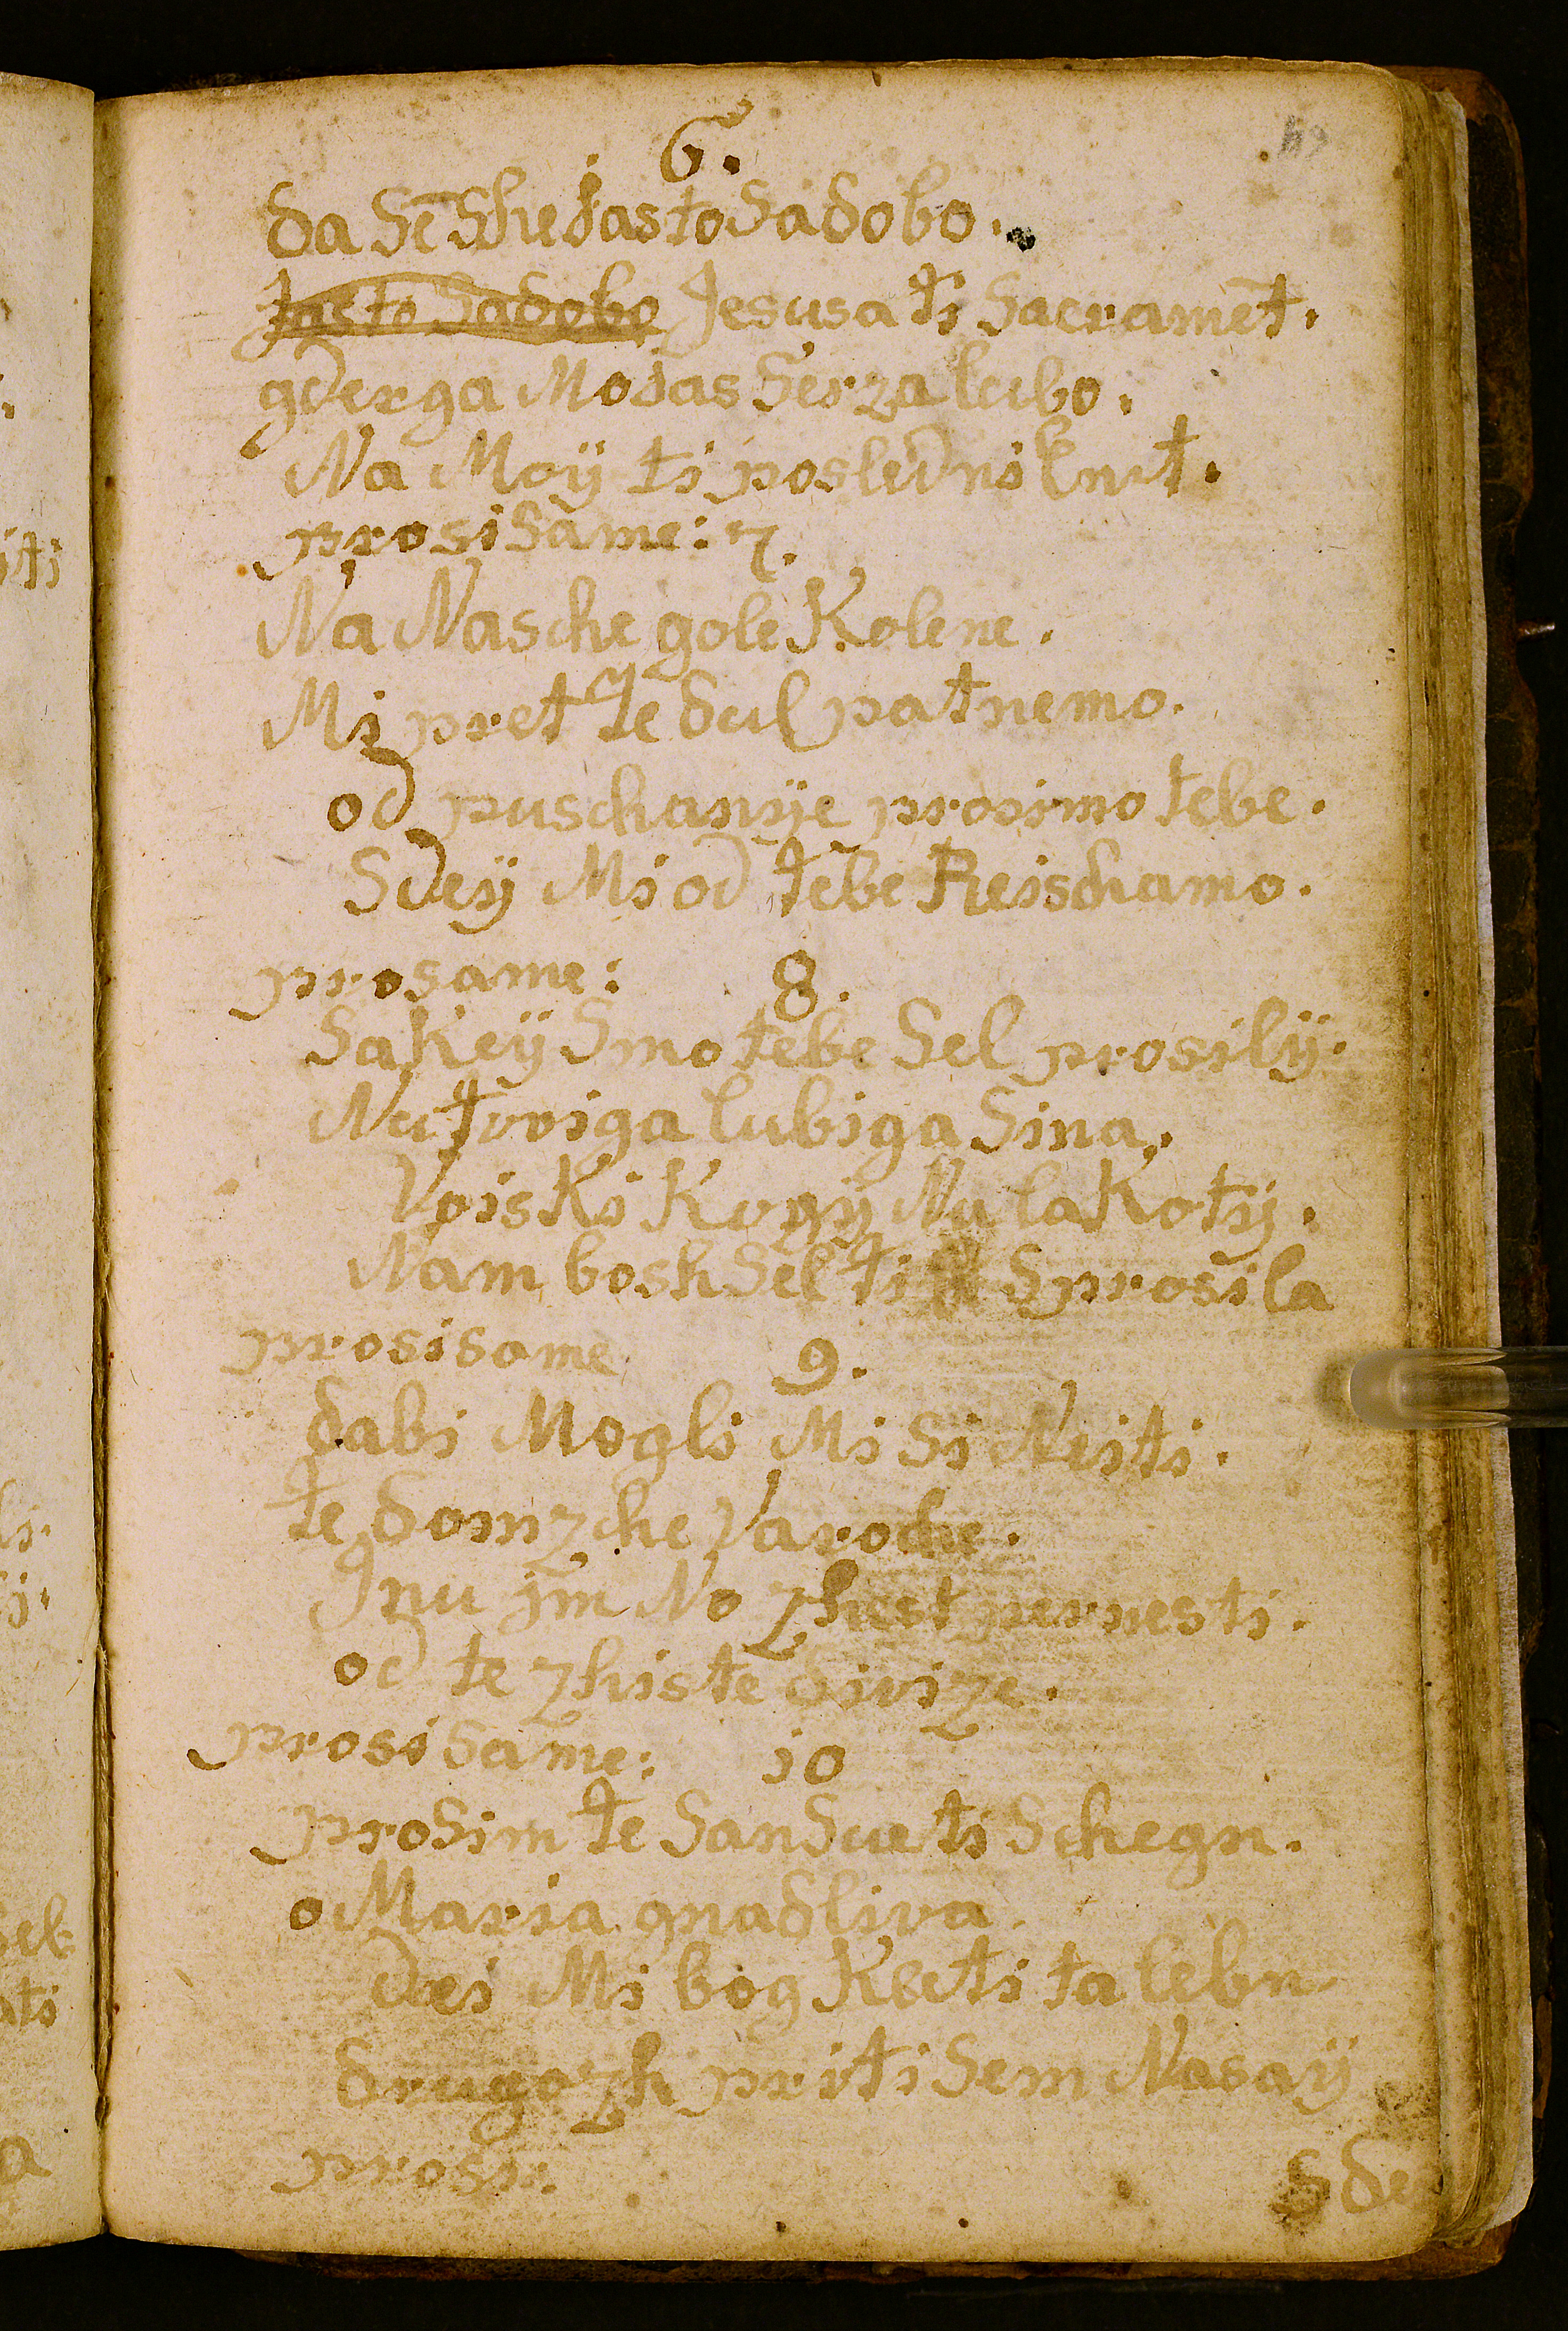 6.
da Sē Shedas to Sadobo.
Jas to Sadobo Jesusa ti Sacramēt.
gderga Modas Serza lubo.
Na Moÿ ti posledni Knut.
prosi Same: 7.
Na Nasche gole Kolene.
Mi pret Te dul patnemo.
od puschanÿe prosimo tebe.
Sdeÿ Mi od tebe Reischamo.
prosame: 8.
Sakeÿ Smo tebe Sel prosilÿ.
Nu tvoiga lubiga Sina.
Voiski Kugÿ Nu lakotÿ.
Nam bosh Sel ti Sprosila
prosisame 9.
dabi Mogli Mi Si Neiti.
te domzhe Varoche.
Jnu jm No zhest pernesti.
od te zhiste divize.
prosi Same: 10
proSim te San Sueti Schegn.
o Maria gnadliva.
dei Mi bog Kecti ta lebn.
drugozh priti Sem Nasaÿ
prosi. Sde